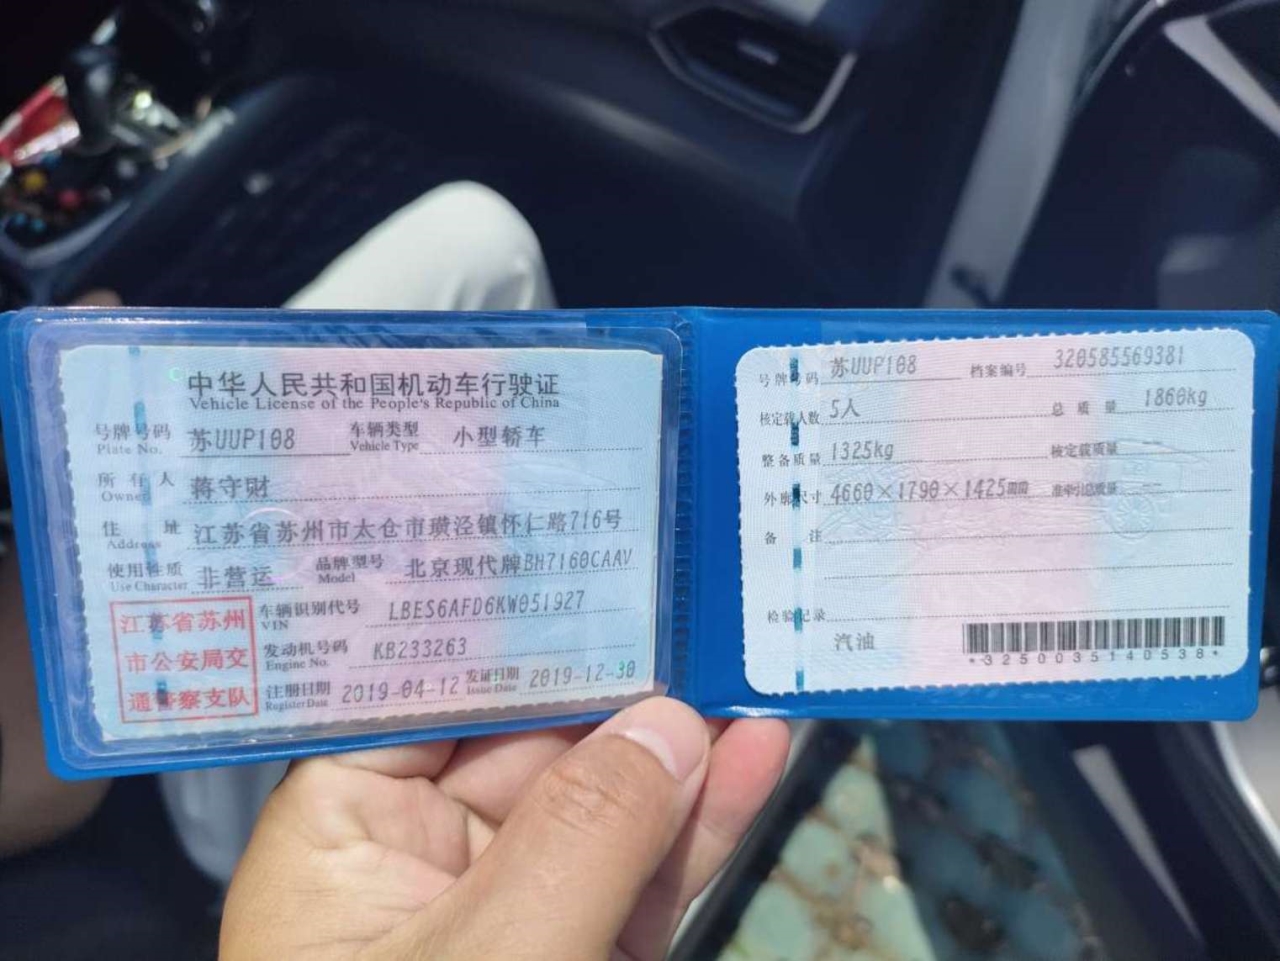 中华人民共和国机动车行驶证
Vehicle License of the People's Republic of China
号牌号码 苏UUP108 车辆类型 小型轿车
Plate No. Vehicle Type
所有人 蒋守财
Owner
住址 江苏省苏州市太仓市璜泾镇怀仁路716号
Address
使用性质 非营运 品牌型号 北京现代牌BH7160CAAV
Use Character Model
江苏省苏州
市公安局交
通警察支队
车辆识别代号 LBES6AFD6KW051927
VIN
发动机号码 KB233263
Engine No.
注册日期 2019-04-12 发证日期 2019-12-30
Register Date Issue Date
号牌号码 苏UUP108 档案编号 320585569381
核定载人数 5人 总质量 1860kg
整备质量 1325kg 核定载质量 --
外廓尺寸 4660×1790×1425mm 准牵引总质量 --
备注
检验记录
汽油
*3250035140538*